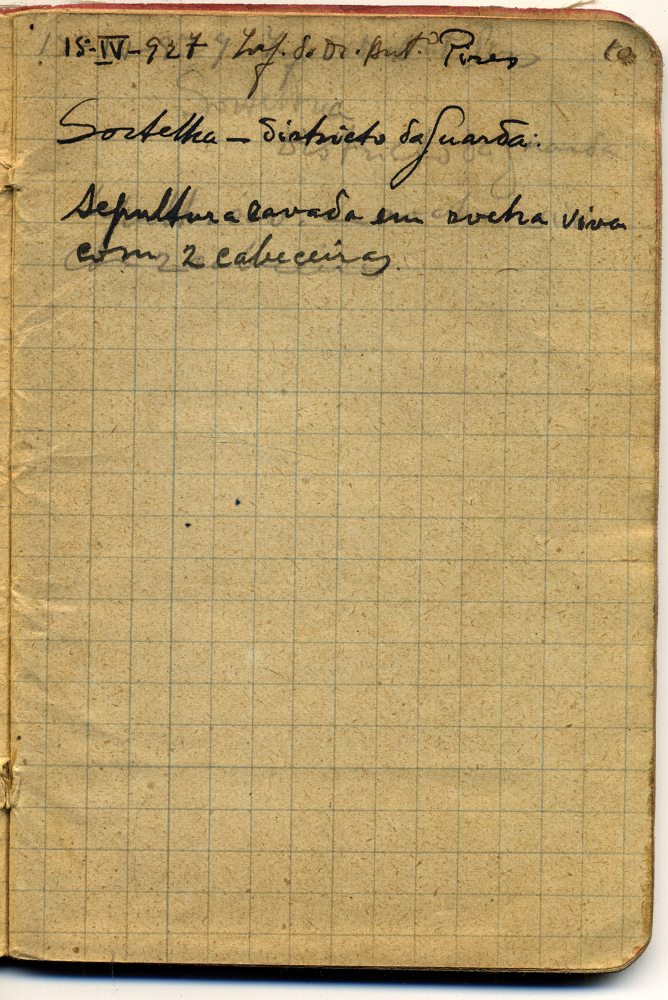 15-IV-927 Inf. do Dr. Ant.º Pires
Sortelha – districto da Guarda:
Sepultura cavada em rocha viva
com 2 cabeceiras.